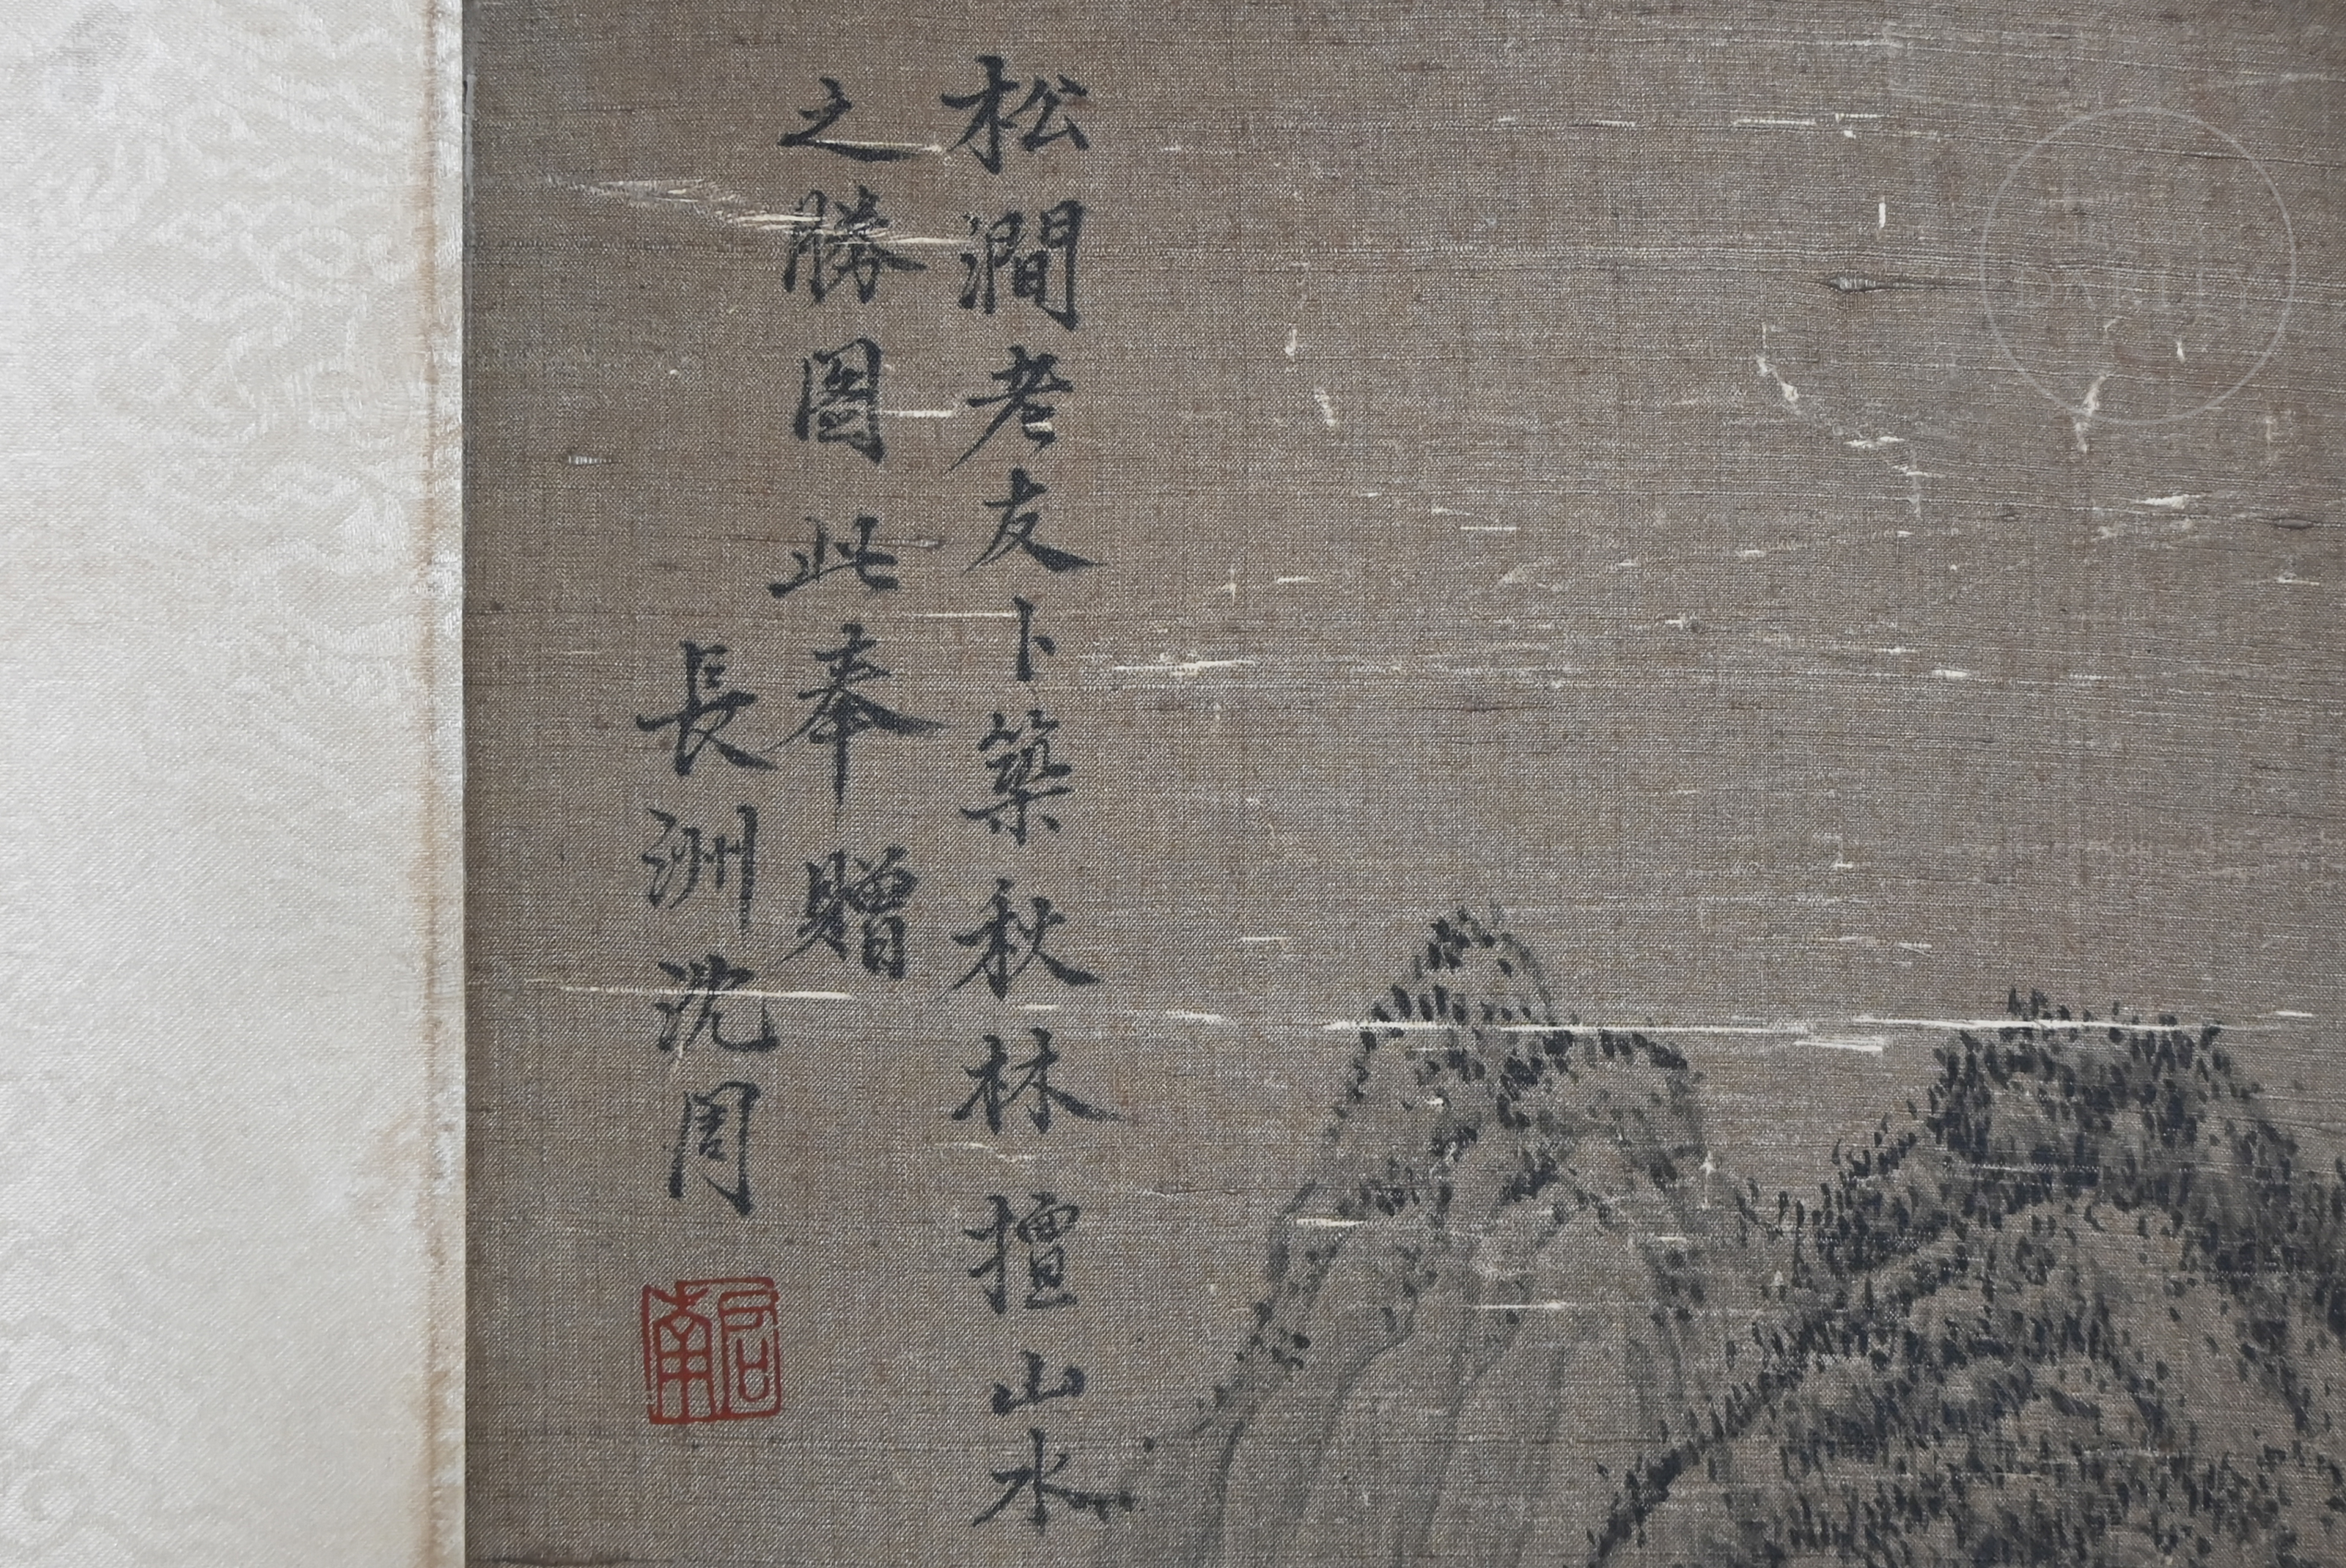 松澗老友卜築秋林擅山水
之勝圖此奉贈
長洲沈周
啟南